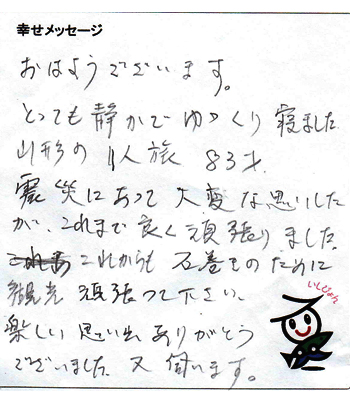 幸せメッセージ
おはようございます。
とっても静かでゆっくり寝ました
山形の11人旅 83才.
震災にあって大変な思いした
が、これまで良く頑張りました
これからも 石巻とのために
観光 頑張って下さい、
楽しい思い出ありがとう
ございました 又伺います。
いしぴょん